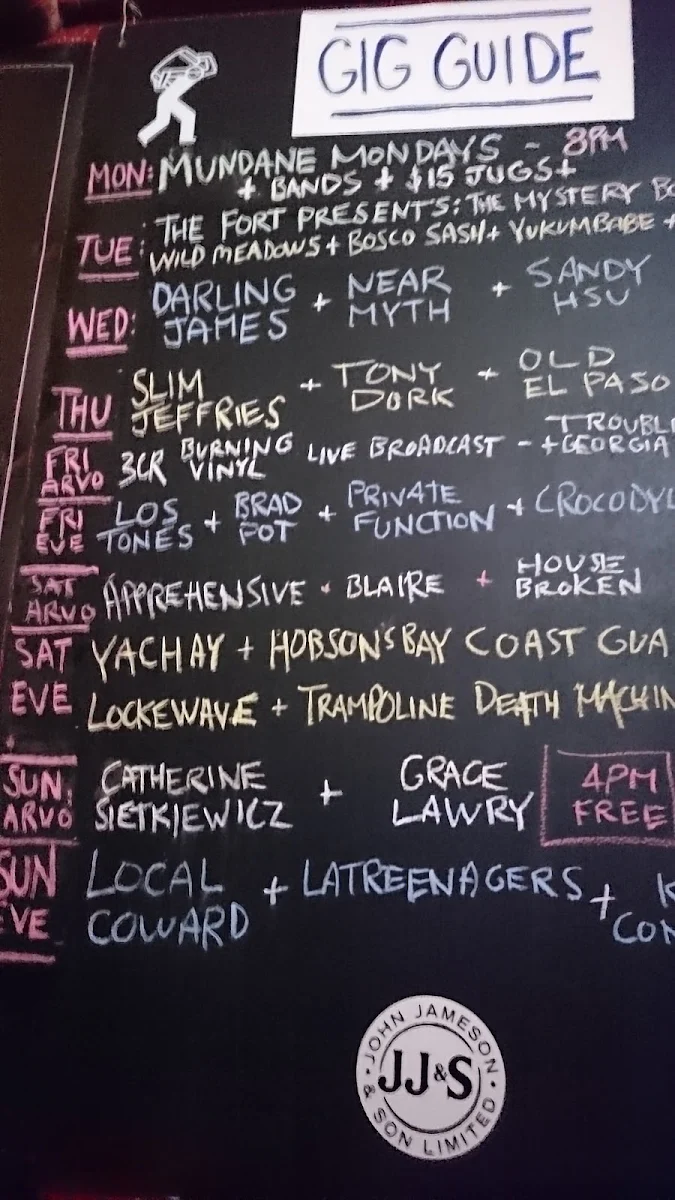 GIG GUIDE
MON: MUNDANE MONDAYS - 8PM
+ BANDS + $15 JUGS +
TUE: THE FORT PRESENTS: THE MYSTERY
WILD MEADOWS + BOSCO SASH + YUKUMBABE +
WED: DARLING JAMES + NEAR MYTH + SANDY HSU
THU SLIM JEFFRIES + TONY DORK + OLD EL PASO
FRI ARVO 3CR BURNING VINYL LIVE BROADCAST - + GEORGIA
FRI EVE LOS TONES + BRAD POT + PRIVATE FUNCTION +
SAT ARVO APPREHENSIVE + BLAIRE + HOUSE BROKEN
SAT EVE YACHAY + HOBSON'S BAY COAST
LOCKEWAVE + TRAMPOLINE DEATH
SUN ARVO CATHERINE SIETKIEWICZ + GRACE LAWRY 4PM FREE
SUN EVE LOCAL COWARD + LATREENAGERS +
JOHN JAMESON
JJ&S
& SON LIMITED